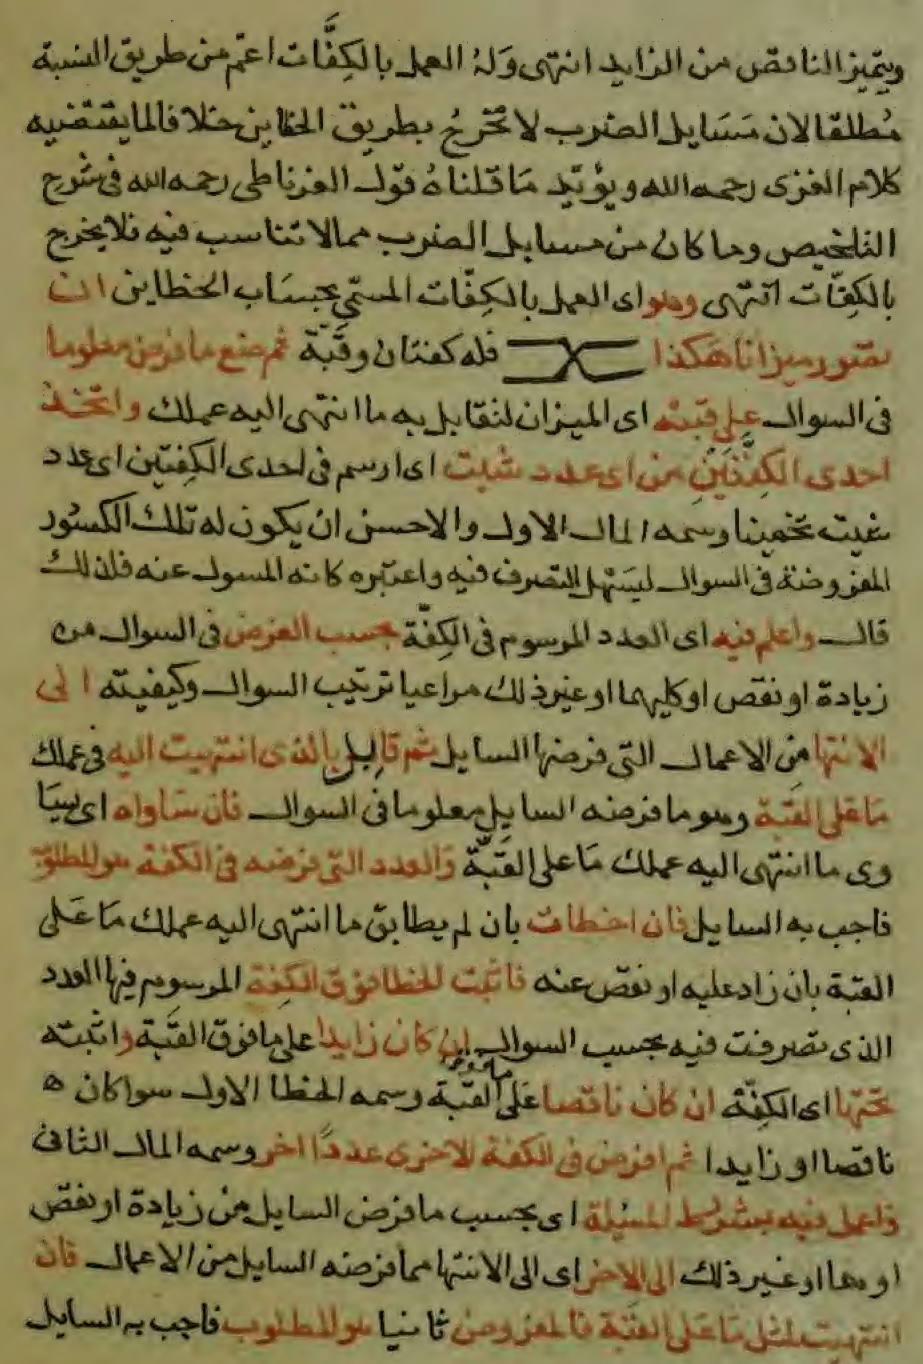 ويتميز الناقص من الزايد انتهى وَلهُ العمل بالكِفَّات اعمّ من طريق النسبة
مُطلقا لان مَسَايل الضرب لا تخرجُ بطريق الخطاين خلافا لما يقتضيه
كلام الغزى رحمه الله ويؤيّد مَا قلناهُ قول الغرناطى رحمه الله فى شرح
التلخيص وما كان من مسايل الضرب مما لا تناسب فيه فلا يخرج
بالكِفّات انتهى وهو اى العمل بالكِفّات المسمّى بحسَاب الخطاين ان
تصور ميزانا هكذا فله كفتان وقبَّة ثم ضع ما فرض معلوما
فى السوال على قبته اى الميزان لتقابل به ما انتهى اليه عملك واتخذ
احدى الكِفَّتَيْن من اى عدد شيت اى ارسم فى احدى الكِفتين اى عدد
شيت تخمينا وسمه المال الاول والاحسن ان يكون له تلك الكسور
المفروضة فى السوال ليَسْهل التصرف فيه واعتبره كانه المسول عنه فلذلك
قال واعلم فيه اى العدد المرسوم فى الكِفّة بحسب الفرض فى السوال من
زيادة او نقص او كليهما او غير ذلك مراعيا ترتيب السوال وكيفيته الى
الانتها من الاعمال التى فرضها السايل ثم قابل بالذى انتهيت اليه فى عملك
مَا على القبة وهو ما فرضه السايل معلوما فى السوال فان ساواه اى يسَا
وى ما انتهى اليه عملك مَا على القبَّة والعدد التى فرضه فى الكفة هو المطلوب
فاجب به السايل فان اخطات بان لم يطابق ما انتهى اليه عملك مَا عَلى
القبة بان زاد عليه او نقص عنه فاثبت الخطا فوق الكفة المرسوم فيها العدد
الذى تصرفت فيه بحسب السوال ان كان زايدا على ما فوق القبَة واثبته
تحتها اى الكِفّة ان كان ناقصا عَلى القبّة وسمه الخطا الاول سوا كان ه
ناقصا او زايدا ثم افرض فى الكفة الاخرى عددًا اخر وسمه المال الثانى
واعمل فيه بشرط المسيلة اى بحسب ما فرض السايل من زيادة او نقص
او هما او غير ذلك الى الاخر اى الى الانتها مما فرضه السايل من الاعمال فان
انتهيت لمثل مَا عَلى القبَة فالمفروض ثانيا هو المطلوب فاجب به السايل